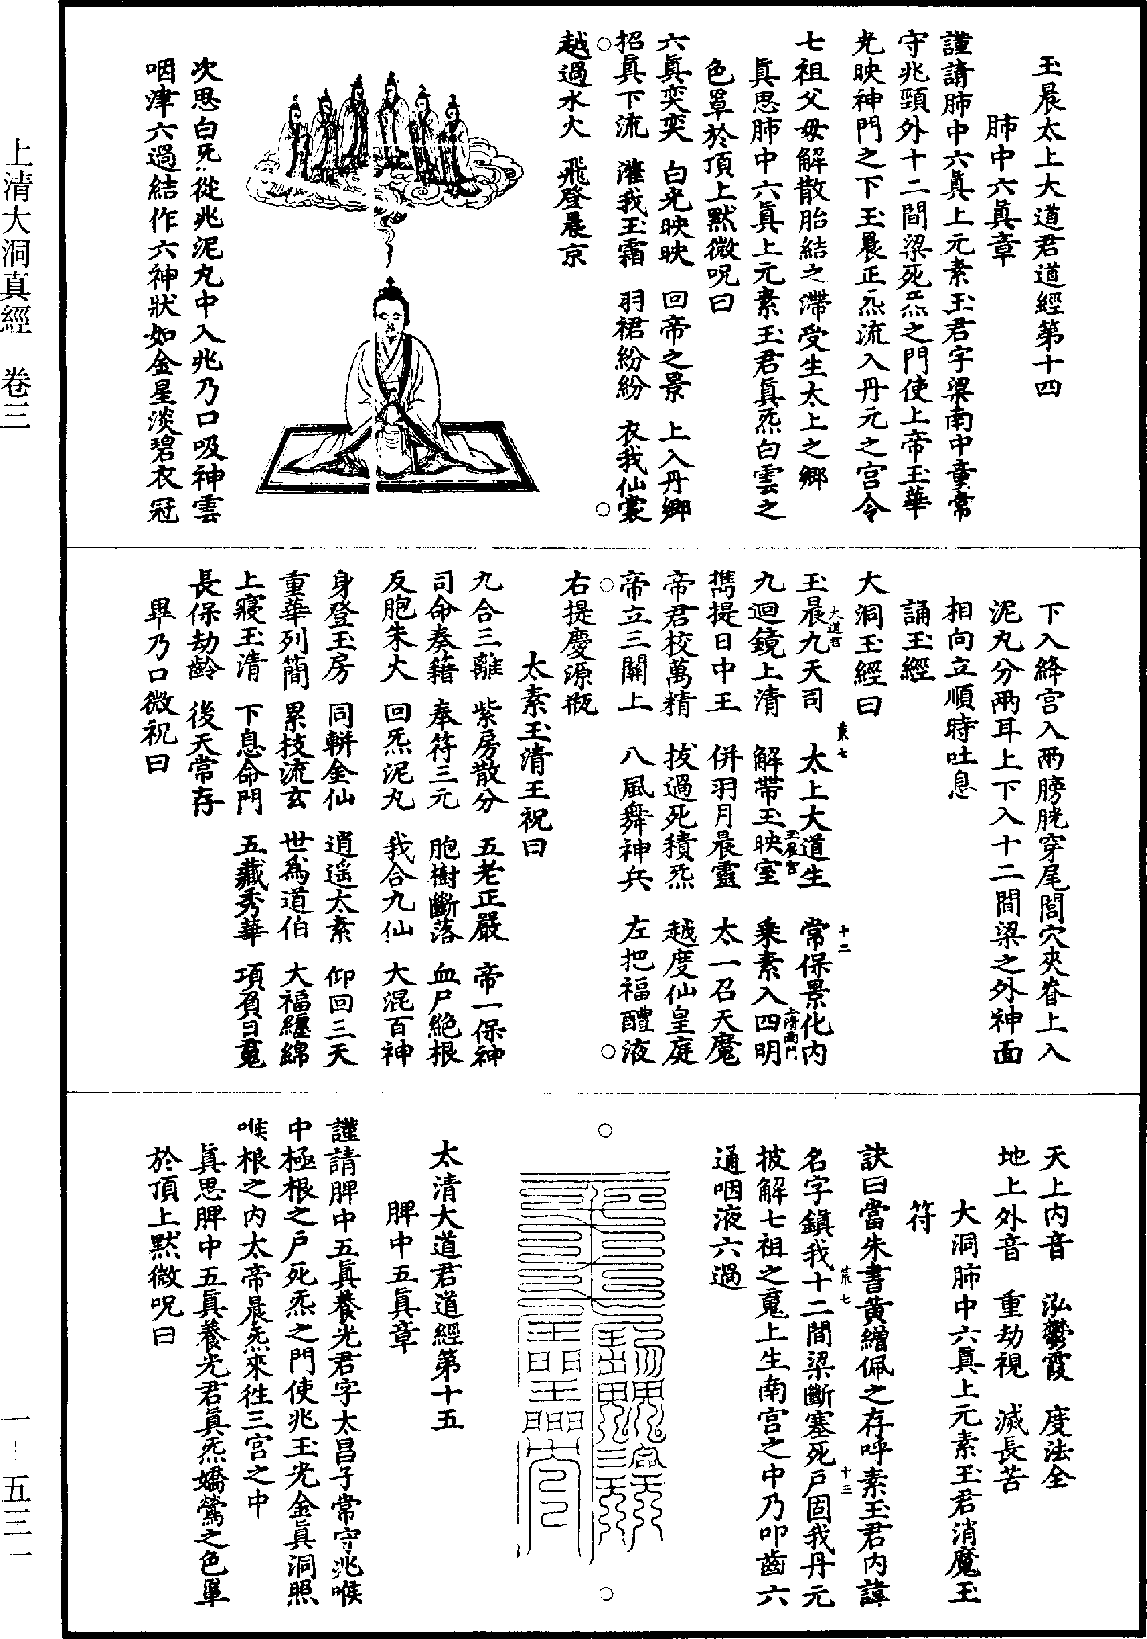 上清大洞真經　卷三
一—五三一
玉晨太上大道君道經第十四
肺中六眞章
謹請肺中六眞上元素玉君字梁南中童常
守兆頸外十二間梁死炁之門使上帝玉華
光映神門之下玉晨正炁流入丹元之宫令
七祖父母解散胎結之滯受生太上之鄉
眞思肺中六眞上元素玉君眞炁白雲之
色罩於頂上默微呪曰
六眞奕奕　白光映映　回帝之景　上入丹鄉
招眞下流　灌我玉霜　羽裙紛紛　衣我仙裳
越過水火　飛登晨京
次思白炁從兆泥丸中入兆乃口吸神雲
咽津六過結作六神狀如金星淡碧衣冠
下入絳宫入兩膀胱穿尾閭穴夾脊上入
泥丸分兩耳上下入十二間梁之外神面
相向立順時吐息
誦玉經
大洞玉經曰
玉晨九天司　太上大道生　常保景化内
大道君
九迴鏡上清　解帶玉映室　乘素入四明
玉晨宫　上清南門
擕提日中王　併羽月晨靈　太一召天魔
帝君校萬精　拔過死積炁　越度仙皇庭
帝立三關上　八風舞神兵　左把福醴液
右提慶源瓶
太素玉清王祝曰
九合三離　紫房散分　五老正嚴　帝一保神
司命奏籍　奉符三元　胞樹斷落　血尸絶根
反胞朱火　回炁泥丸　我合九仙　大混百神
身登玉房　同軿金仙　逍遥太素　仰回三天
重華列簡　累枝流玄　世爲道伯　大福纏綿
上寢玉清　下息命門　五藏秀華　項負日魂
長保劫齡　後天常存
畢乃口微祝曰
天上内音　泓鬱霞　度法全
地上外音　重劫視　滅長苦
大洞肺中六眞上元素玉君消魔玉
符
訣曰當朱書黄繒佩之存呼素玉君内諱
名字鎮我十二間梁斷塞死户固我丹元
披解七祖之魂上生南宫之中乃叩齒六
通咽液六過
太清大道君道經第十五
脾中五眞章
謹請脾中五眞養光君字太昌子常守兆喉
中極根之户死炁之門使兆玉光金眞洞照
喉根之内太帝晨炁來往三宫之中
眞思脾中五眞養光君眞炁嬌鶯之色罩
於頂上默微呪曰